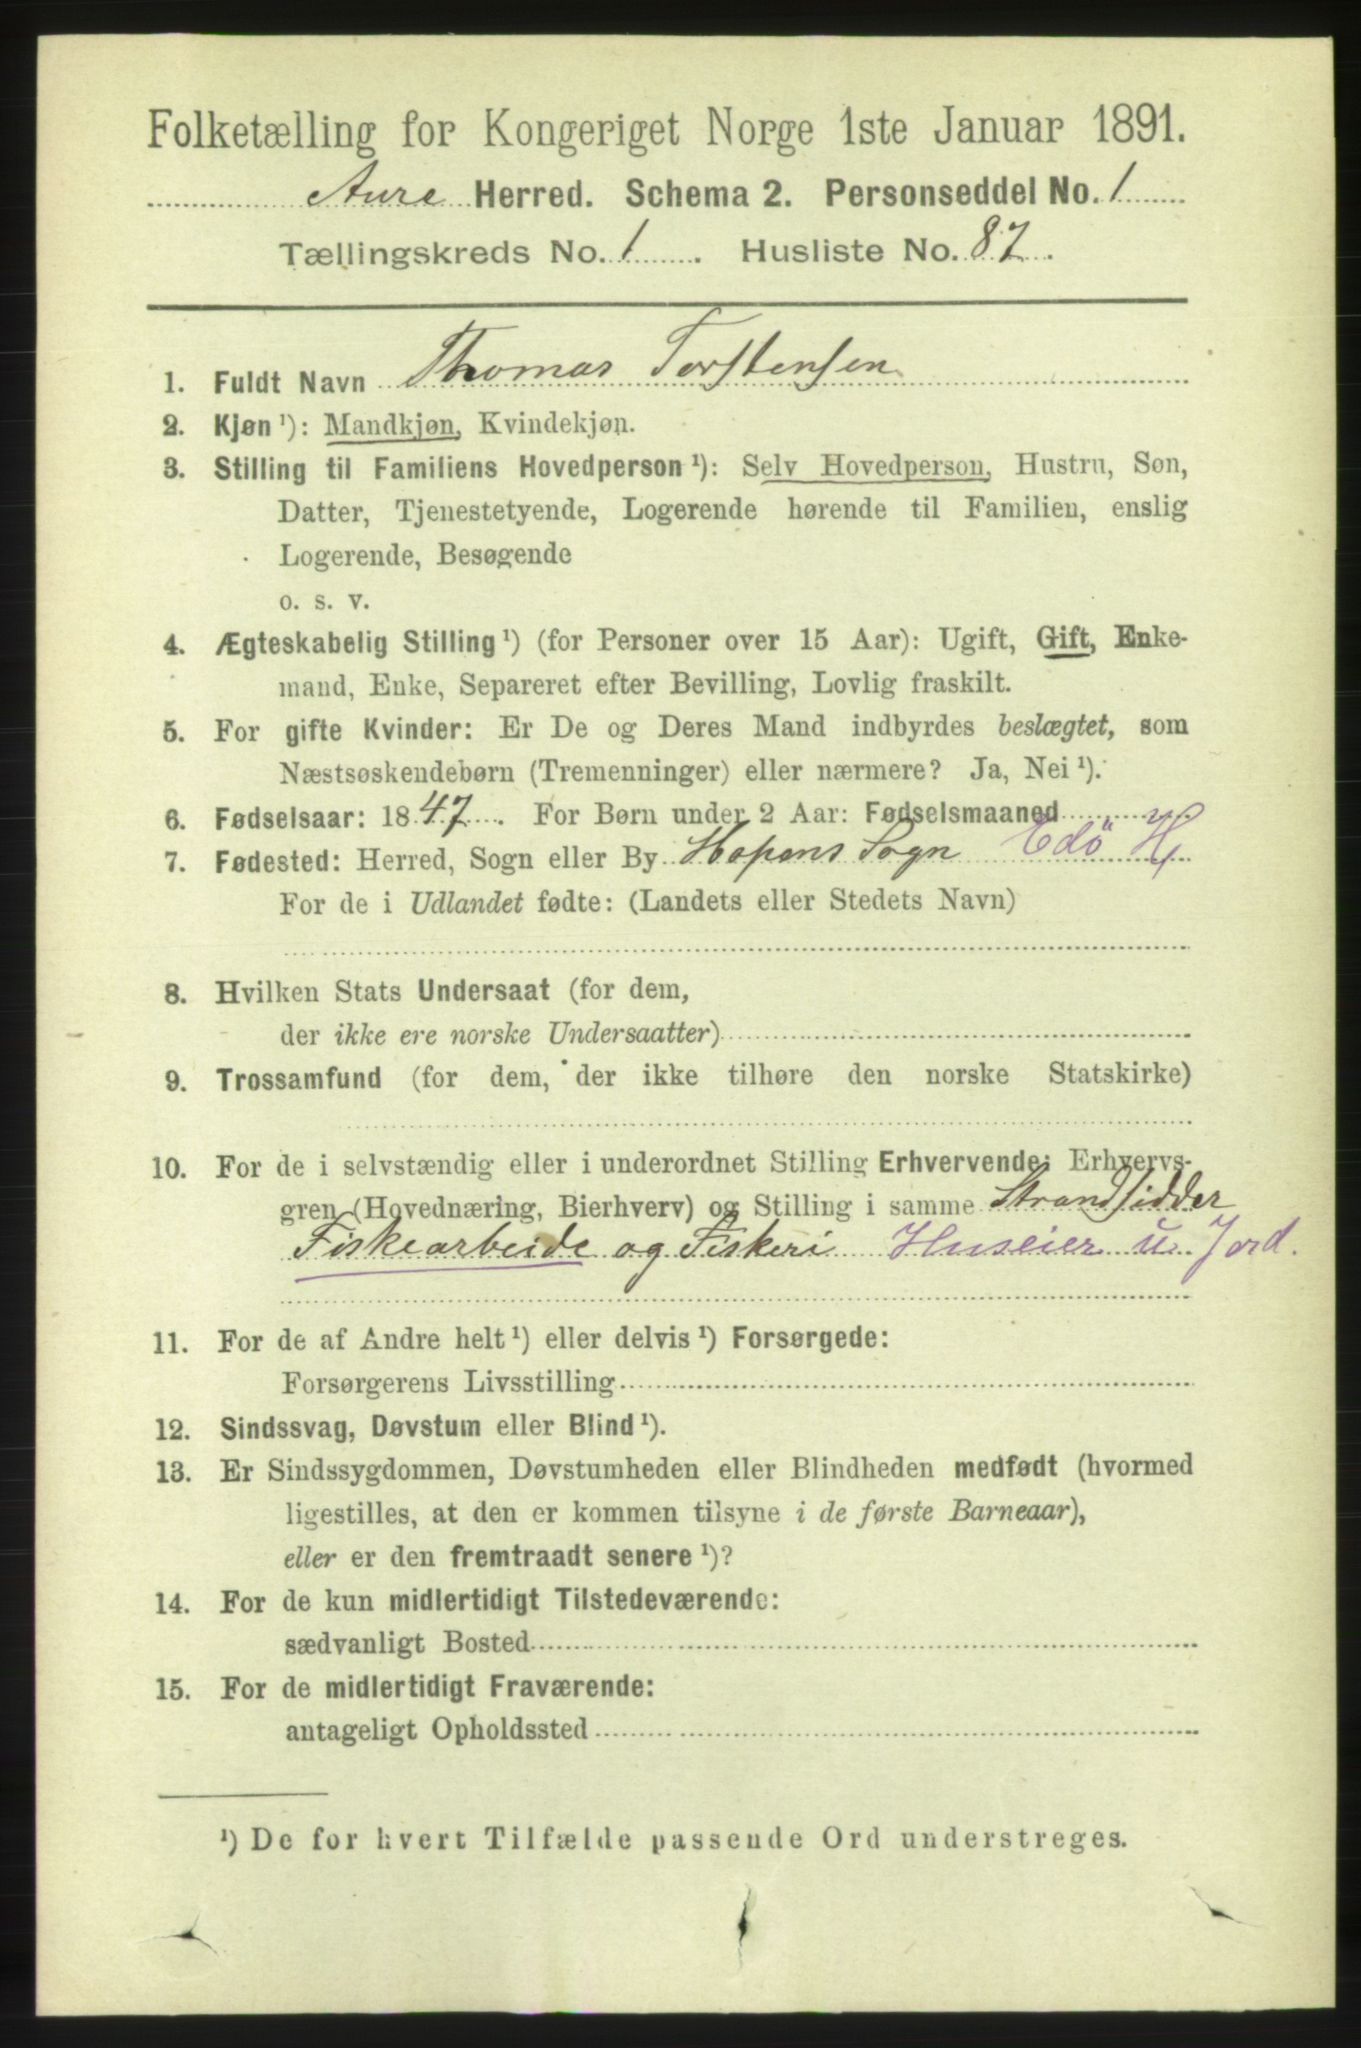 Folketælling for Kongeriget Norge 1ste Januar 1891.
Aure Herred. Schema 2. Personseddel No. 1
Tællingskreds No. 1 . Husliste No. 87.
1. Fuldt Navn Thomas Torstensen
2. Kjøn ¹): Mandkjøn, Kvindekjøn.
3. Stilling til Familiens Hovedperson ¹): Selv Hovedperson, Hustru, Søn,
Datter, Tjenestetyende, Logerende hørende til Familien, enslig
Logerende, Besøgende
o. s. v.
4. Ægteskabelig Stilling ¹) (for Personer over 15 Aar): Ugift, Gift, Enke-
mand, Enke, Separeret efter Bevilling, Lovlig fraskilt.
5. For gifte Kvinder: Er De og Deres Mand indbyrdes beslægtet, som
Næstsøskendebørn (Tremenninger) eller nærmere? Ja, Nei ¹).
6. Fødselsaar: 1847. For Børn under 2 Aar: Fødselsmaaned
7. Fødested: Herred, Sogn eller By Hopens Sogn Edö H
For de i Udlandet fødte: (Landets eller Stedets Navn)
8. Hvilken Stats Undersaat (for dem,
der ikke ere norske Undersaatter)
9. Trossamfund (for dem, der ikke tilhøre den norske Statskirke)
10. For de i selvstændig eller i underordnet Stilling Erhvervende: Erhvervs-
gren (Hovednæring, Bierhverv) og Stilling i samme Strandsidder
Fiskearbeide og Fiskeri Huseier u. Jord.
11. For de af Andre helt ¹) eller delvis ¹) Forsørgede:
Forsørgerens Livsstilling
12. Sindssvag, Døvstum eller Blind ¹).
13. Er Sindssygdommen, Døvstumheden eller Blindheden medfødt (hvormed
ligestilles, at den er kommen tilsyne i de første Barneaar),
eller er den fremtraadt senere ¹)?
14. For de kun midlertidigt Tilstedeværende:
sædvanligt Bosted
15. For de midlertidigt Fraværende:
antageligt Opholdssted
¹) De for hvert Tilfælde passende Ord understreges.